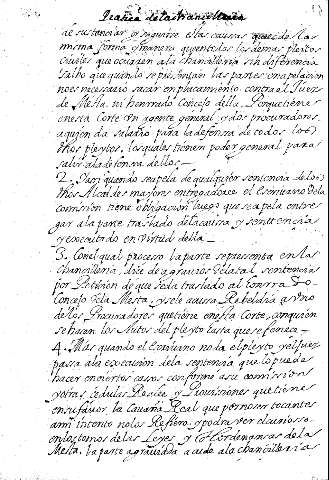 Practica de la Chancilleria
de sustanciar, y seguirse estas causas que es de la
misma forma y manera que en todos los demas pleytos
Civiles que ocurren a la Chancilleria sin diferencia
salbo que quando se presentan las partes en apelacion
no es necesario sacar emplazamiento contra el Juez
de Mesta ni honrrado Concejo della Porque tiene
en esta Corte Un agente general y dos procuradores
a quien da salario para la defensa de todos los
dhos pleytos, los quales tienen poder general para
salir a la defensa dellos
2. Yten quando se apela de qualquier sentencia de los
dhos Alcaldes mayores entregadores el escrivano de la
comision tiene obligacion luego que se apela entre
gar a la parte traslado de la causa y sentencia
y executado en virtud della
3. Con el qual proceso la parte se presenta en la
Chancilleria, dice de agravios de la tal sentencia
por Peticion de que se da traslado al honrrado
Concejo de la Mesta, y se le acusa Rebeldia a uno
de los Procuradores que tiene en esta Corte, con quien
se hacen los Autos del pleyto hasta que se fenece
4. Mas quando el escrivano no da el pleyto y el juez
pasa a la execucion de la sentencia que lo puede
hacer en ciertos casos conforme a su comission
y otras Cedulas Reales y Provisiones que tiene
en su fabor, la Cavaña Real que por no ser tocantes
a mi intento no las Refiero, y podra ver el curioso
en los tomos de las Leyes y Ordenanzas de la
Mesta, la parte agraviada acude a la chancilleria